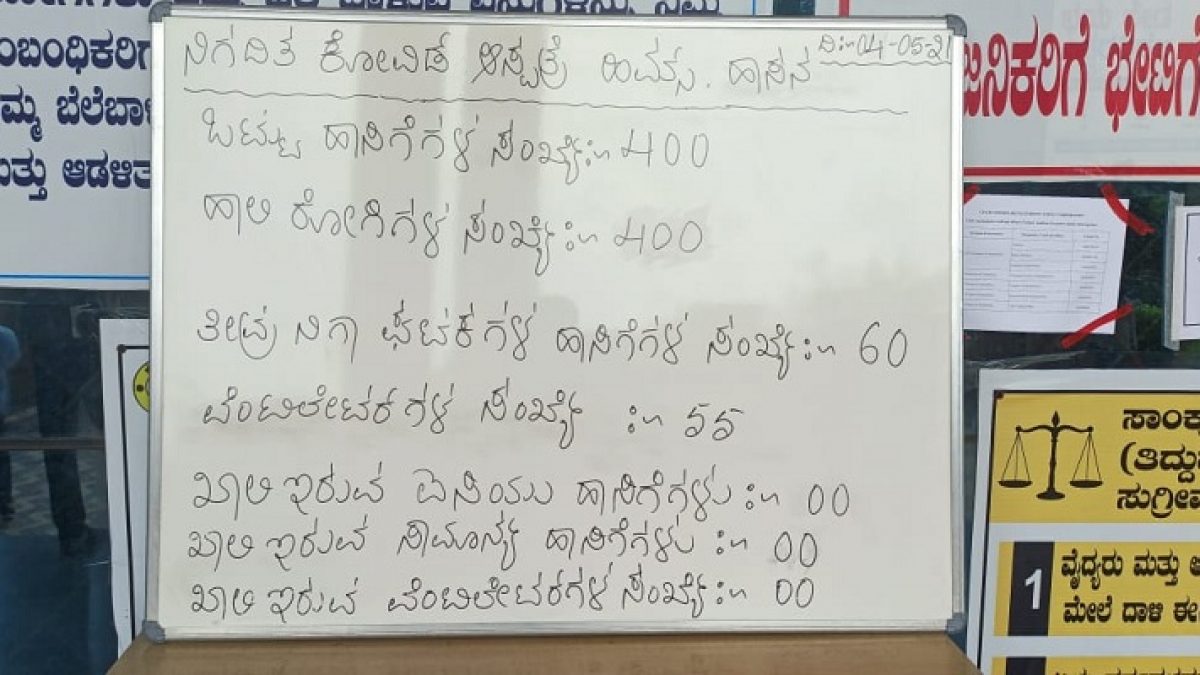 ನಿಗದಿತ ಕೋವಿಡ್ ಆಸ್ಪತ್ರೆ ಹಿಮ್ಸ್. ಹಾಸನ ದಿ:-04-05-21
ಒಟ್ಟು ಹಾಸಿಗೆಗಳ ಸಂಖ್ಯೆ:- 400
ಹಾಲಿ ರೋಗಿಗಳ ಸಂಖ್ಯೆ:- 400
ತೀವ್ರ ನಿಗಾ ಘಟಕಗಳ ಹಾಸಿಗೆಗಳ ಸಂಖ್ಯೆ:- 60
ವೆಂಟಿಲೇಟರಗಳ ಸಂಖ್ಯೆ :- 55
ಖಾಲಿ ಇರುವ ಐಸಿಯು ಹಾಸಿಗೆಗಳು:- 00
ಖಾಲಿ ಇರುವ ಸಾಮಾನ್ಯ ಹಾಸಿಗೆಗಳು :- 00
ಖಾಲಿ ಇರುವ ವೆಂಟಿಲೇಟರಗಳ ಸಂಖ್ಯೆ:- 00
ಂಬಂಧಿಕರಿಗ
ಮ್ಮ ಬೆಲೆಬಾಳ
ಮತ್ತು ಆಡಳಿತ
ಜನಿಕರಿಗೆ ಭೇಟಿಗೆ
ಸಾಂಕ್
(ತಿದ್ದು
ಸುಗ್ರೀವ
1 ವೈದ್ಯರು ಮತ್ತು ಆ
ಮೇಲೆ ದಾಳಿ ಈ